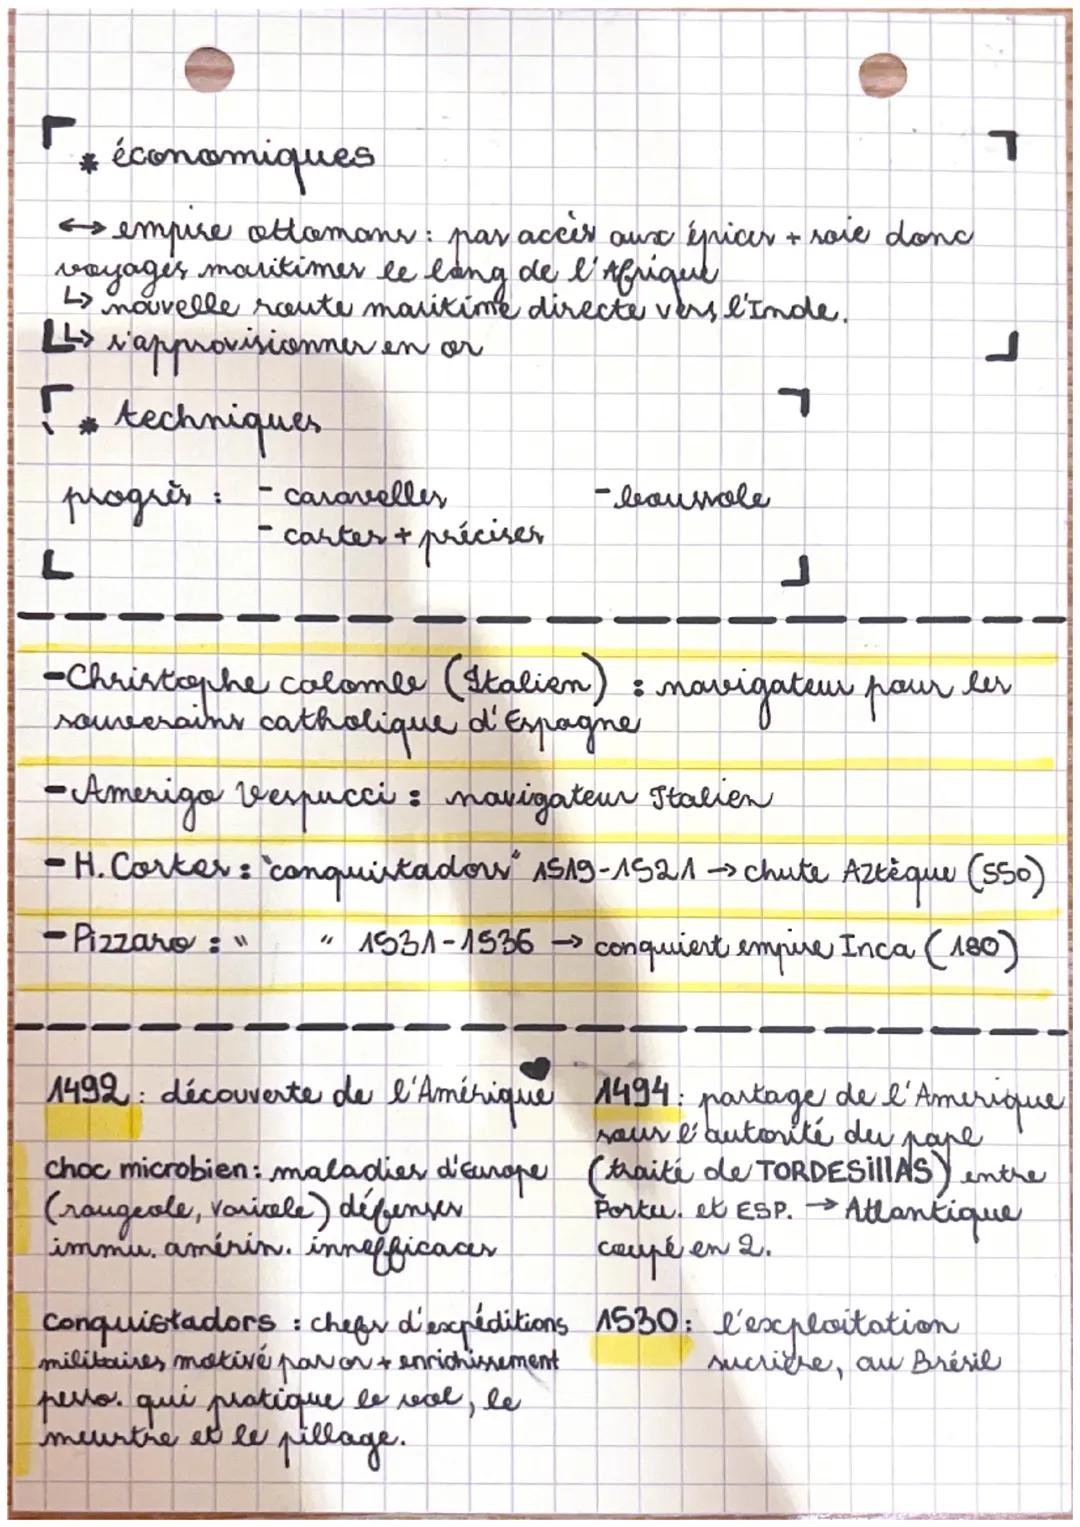 * économiques
↔ empire ottomans : pas accès aux épices + soie donc
voyages maritimes le long de l'Afrique
↳ nouvelle route maritime directe vers l'Inde.
↳ s'approvisionner en or
* techniques
progrès : - caravelles - boussole
- cartes + précises
- Christophe colomb (Italien) : navigateur pour les
souverains catholique d'Espagne
- Amerigo Vespucci : navigateur Italien
- H. Cortes : "conquistadors" 1519-1521 → chute Aztèque (550)
- Pizzaro : " " 1531-1536 → conquiert empire Inca (180)
1492 : découverte de l'Amérique
choc microbien : maladies d'Europe
(rougeole, variole) défenses
immu. amérin. innefficaces
conquistadors : chefs d'expéditions
militaires motivé par or + enrichissement
perso. qui pratique le vol, le
meurtre et le pillage.
1494 : partage de l'Amerique
sous l'autorité du pape
(traité de TORDESillAS) entre
Portu. et ESP. → Atlantique
coupé en 2.
1530 : l'exploitation
sucrière, au Brésil